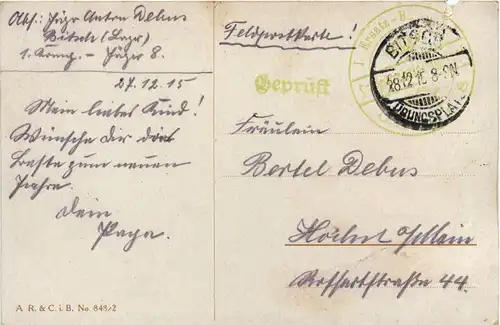 Abs: Jäger Anton Debus
Bitsch (Lager)
1. Komp. – Jäger 8.
27.12.15
Mein liebes Kind!
Wünsche Dir das
Beste zum neuen
Jahre.
Dein
Papa.
A R. & C. i. B. No. 848/2
Feldpostkarte!
Geprüft
I Ersatz-B
BITSCH
28.12.15 8-9N
ÜBUNGSPLATZ
Fräulein
Bertel Debus
Höchst a/Main
Rossertstraße 44.